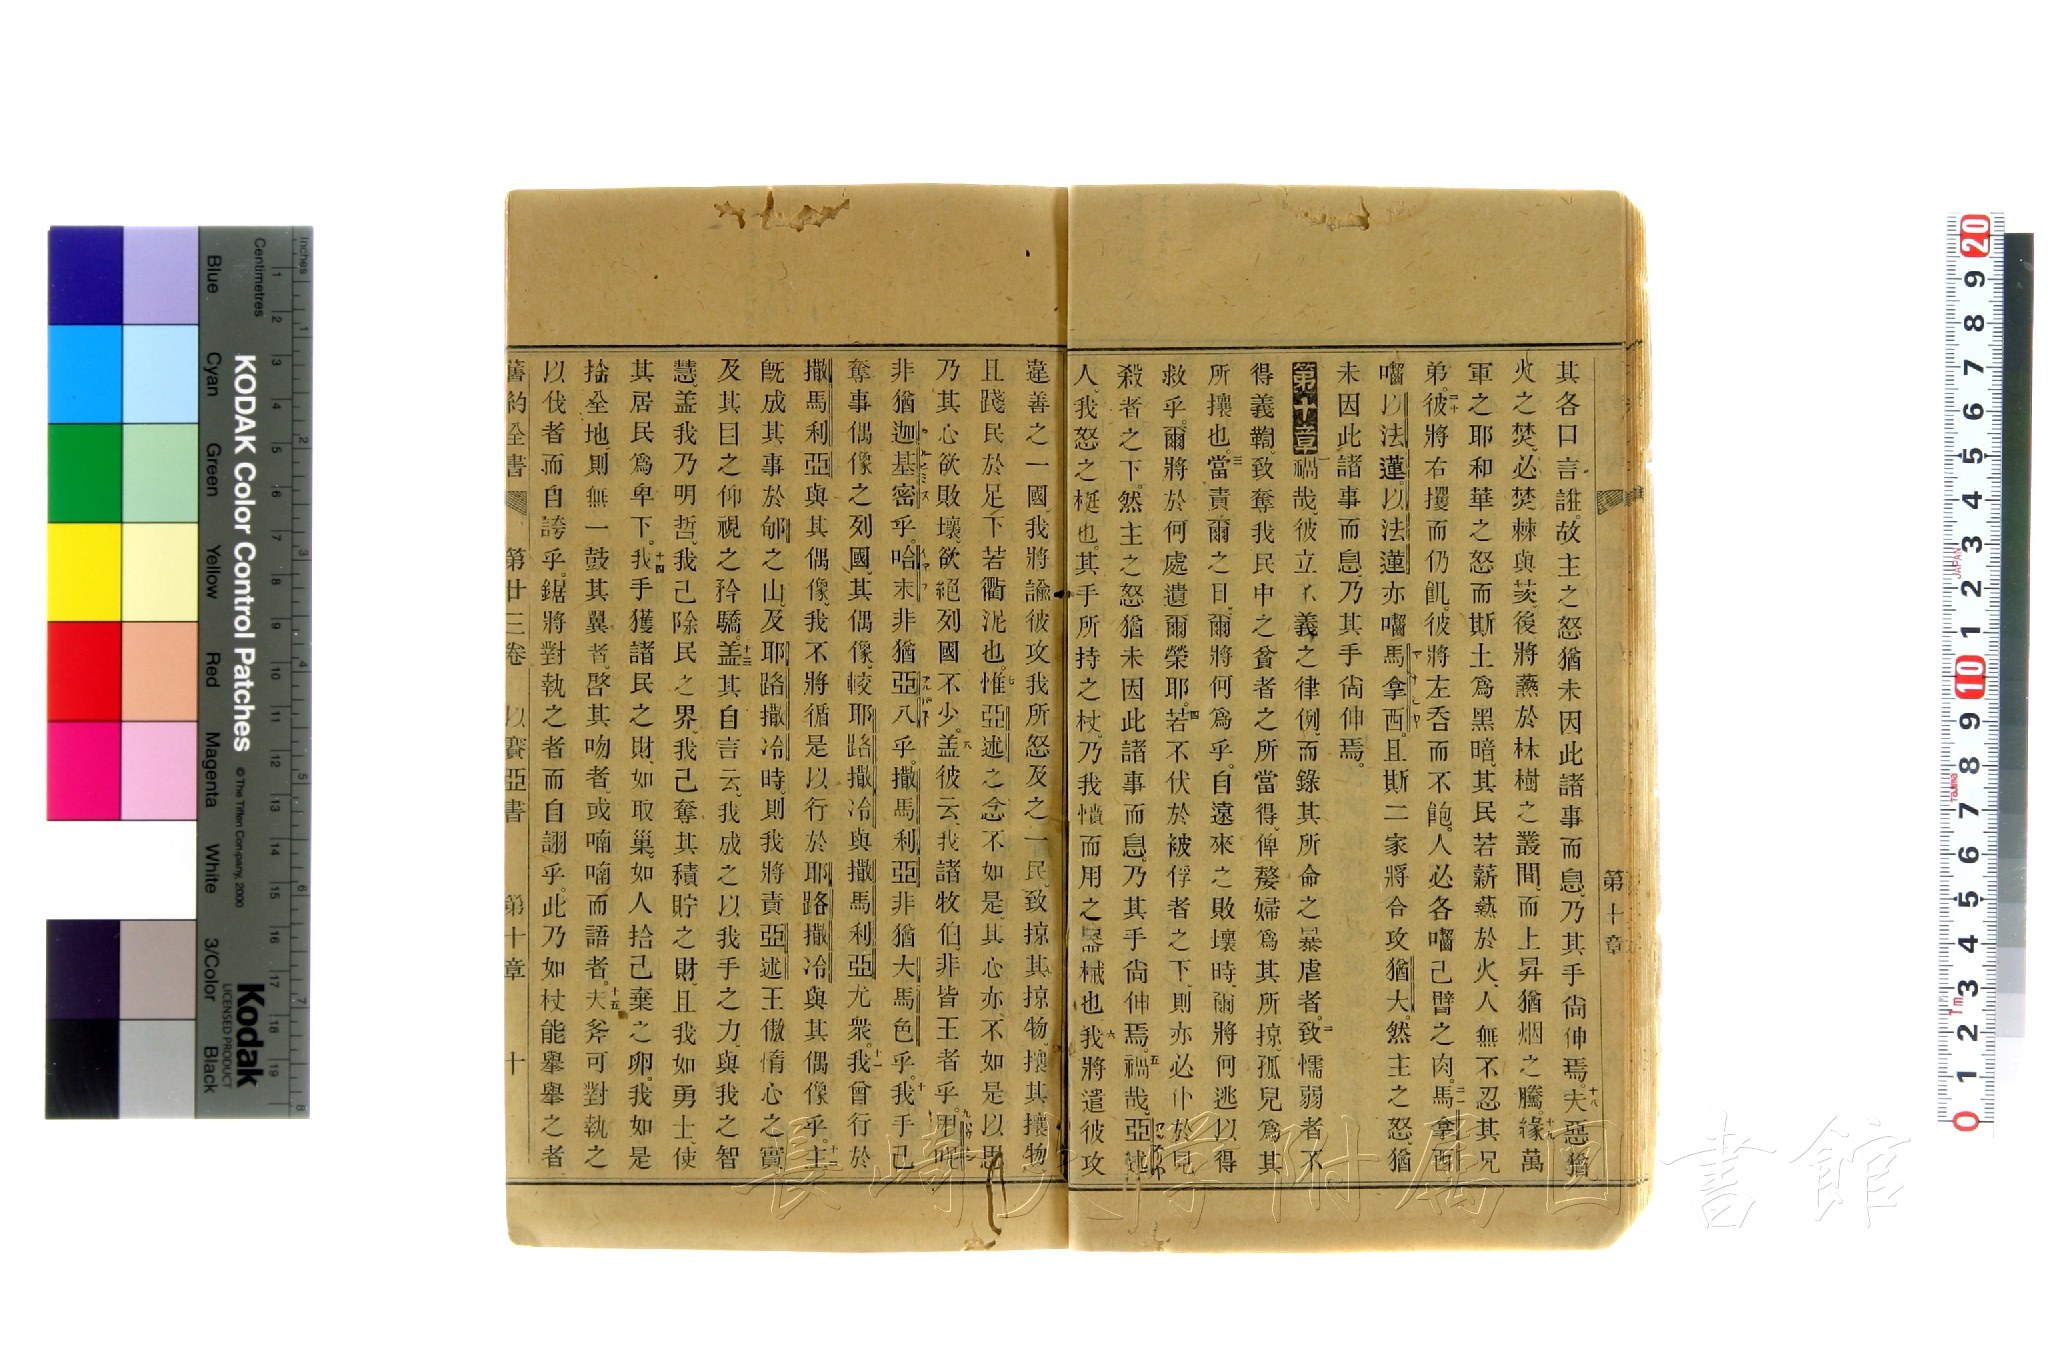 第十章
其各口言誑。故主之怒猶未因此諸事而息、乃其手尙伸焉。十八夫惡猶
火之焚、必焚棘與茨、後將爇於林樹之叢間、而上昇猶烟之騰。十九緣萬
軍之耶和華之怒而斯土爲黑暗、其民若薪爇於火、人無不忍其兄
弟。二十彼將右攫而仍飢。彼將左呑而不飽。人必各囓己臂之肉。二一馬拿西
囓以法蓮。以法蓮亦囓馬拿西。且斯二家將合攻猶大。然主之怒、猶
未因此諸事而息、乃其手尙伸焉。
第十章一禍哉、彼立不義之律例、而錄其所命之暴虐者。二致懦弱者不
得義鞫、致奪我民中之貧者之所當得、俾嫠婦爲其所掠、孤兒爲其
所攘也。三當責爾之日、爾將何爲乎。自遠來之敗壞時、爾將何逃以得
救乎。爾將於何處遺爾榮耶。四若不伏於被俘者之下、則亦必仆於見
殺者之下。然主之怒猶未因此諸事而息、乃其手尙伸焉。五禍哉、亞述
人、我怒之梃也。其手所持之杖、乃我憤而用之器械也。六我將遣彼攻
違善之一國、我將諭彼攻我所怒及之一民、致掠其掠物、攘其攘物
且踐民於足下若衢泥也。七惟亞述之念不如是、其心亦不如是以思
乃其心欲敗壞、欲絕列國不少。八蓋彼云、我諸牧伯、非皆王者乎。九
非猶迦基密乎。哈末非猶亞八乎。撒馬利亞非猶大馬色乎。十我手已
奪事偶像之列國、其偶像、較耶路撒冷與撒馬利亞尤衆。十一我曾行於
撒馬利亞與其偶像、我不將循是以行於耶路撒冷與其偶像乎。十二主
旣成其事於郇之山、及耶路撒冷時、則我將責亞述王傲惰心之實
及其目之仰視之矜驕。十三蓋其自言云、我成之以我手之力、與我之智
慧、蓋我乃明哲、我已除民之界、我已奪其積貯之財、且我如勇士、使
其居民爲卑下。十四我手獲諸民之財、如取巢。如人拾己棄之卵。我如是
拾全地、則無一鼓其翼者、啓其吻者、或喃喃而語者。十五夫斧可對執之
以伐者而自誇乎。鋸將對執之者而自詡乎。此乃如杖能擧擧之者
舊約全書 第廿三卷 以賽亞書 第十章 十
KODAK Color Control Patches
© The Tiffen Company, 2000
Kodak
LICENSED PRODUCT
Inches
Centimetres
Blue Cyan Green Yellow Red Magenta White 3/Color Black
長崎大學附属図書館